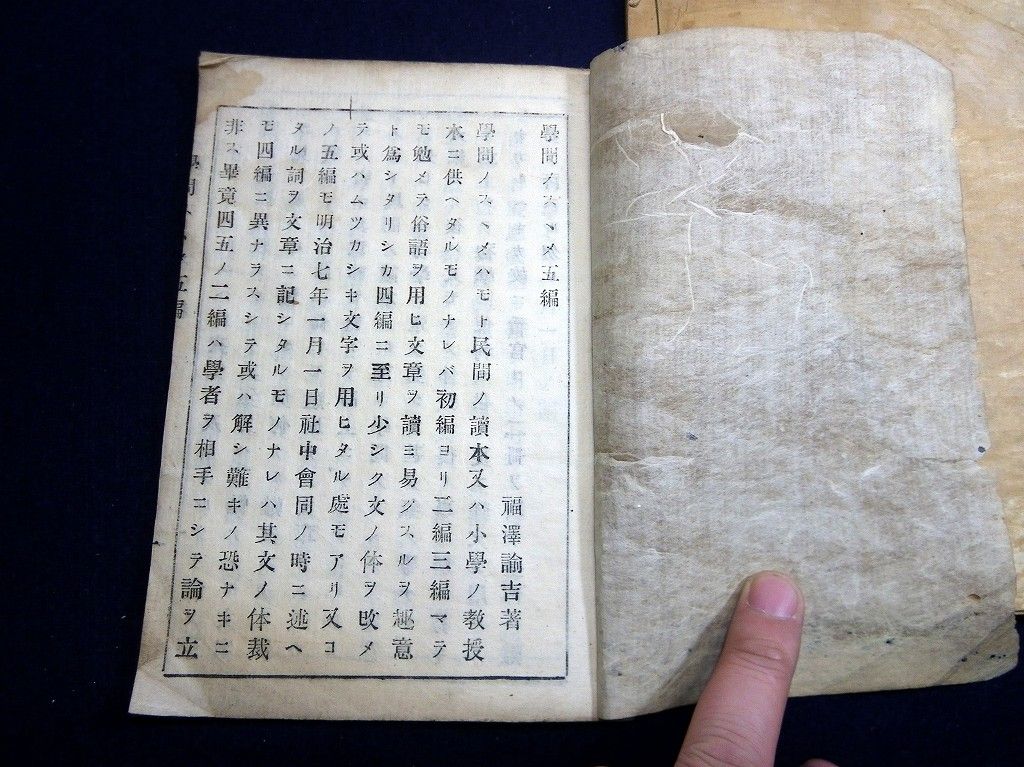 學問ノスヽメ五編
福澤諭吉著
學問ノスヽメハモト民間ノ讀本又ハ小學ノ教授
本ニ供ヘタルモノナレバ初編ヨリ二編三編マテ
モ勉メテ俗語ヲ用ヒ文章ヲ讀ミ易クスルヲ趣意
ト爲シタリシカ四編ニ至リ少シク文ノ体ヲ改メ
テ或ハムツカシキ文字ヲ用ヒタル處モアリ又コ
ノ五編モ明治七年一月一日社中會同ノ時ニ述ヘ
タル詞ヲ文章ニ記シタルモノナレハ其文ノ体裁
モ四編ニ異ナラスシテ或ハ解シ難キノ恐ナキニ
非ス畢竟四五ノ二編ハ學者ヲ相手ニシテ論ヲ立